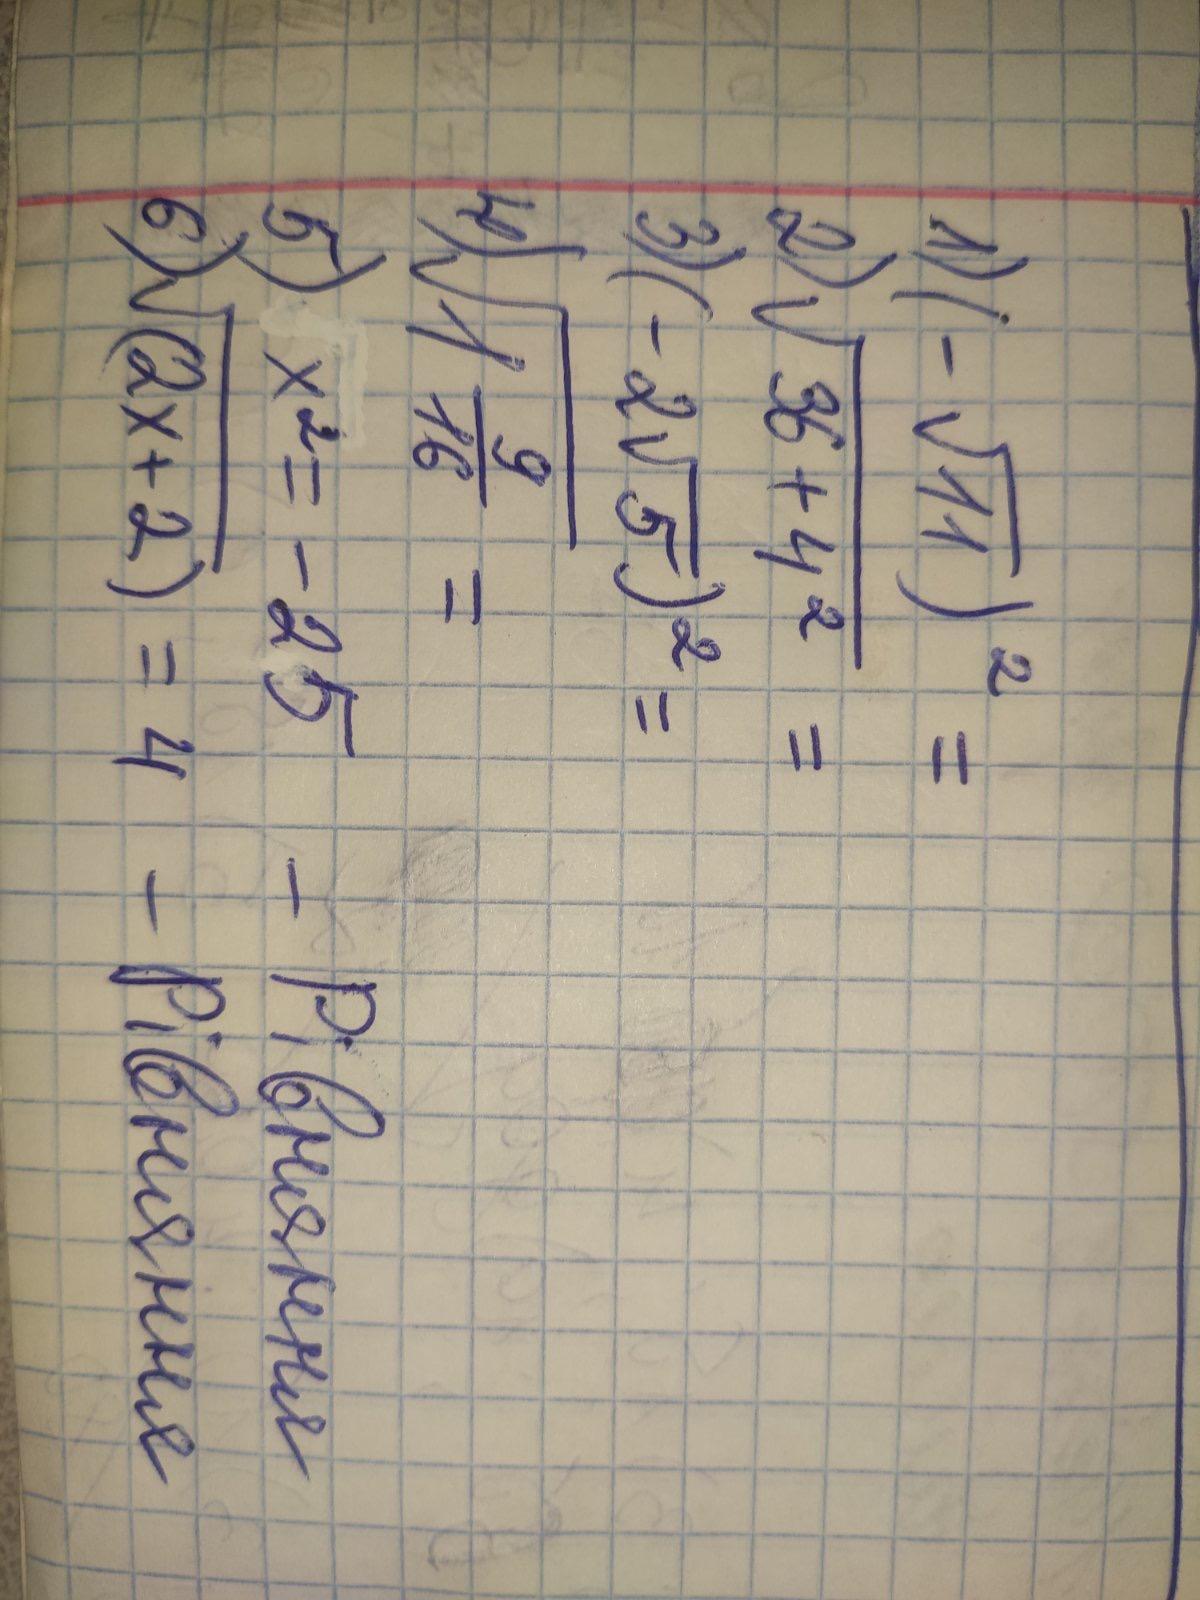 1) (-√11)² =
2) √36+4² =
3) (-2√5)² =
4) √1 9/16 =
5) x² = -25 - рівняння
6) √(2x+2) = 4 - рівняння